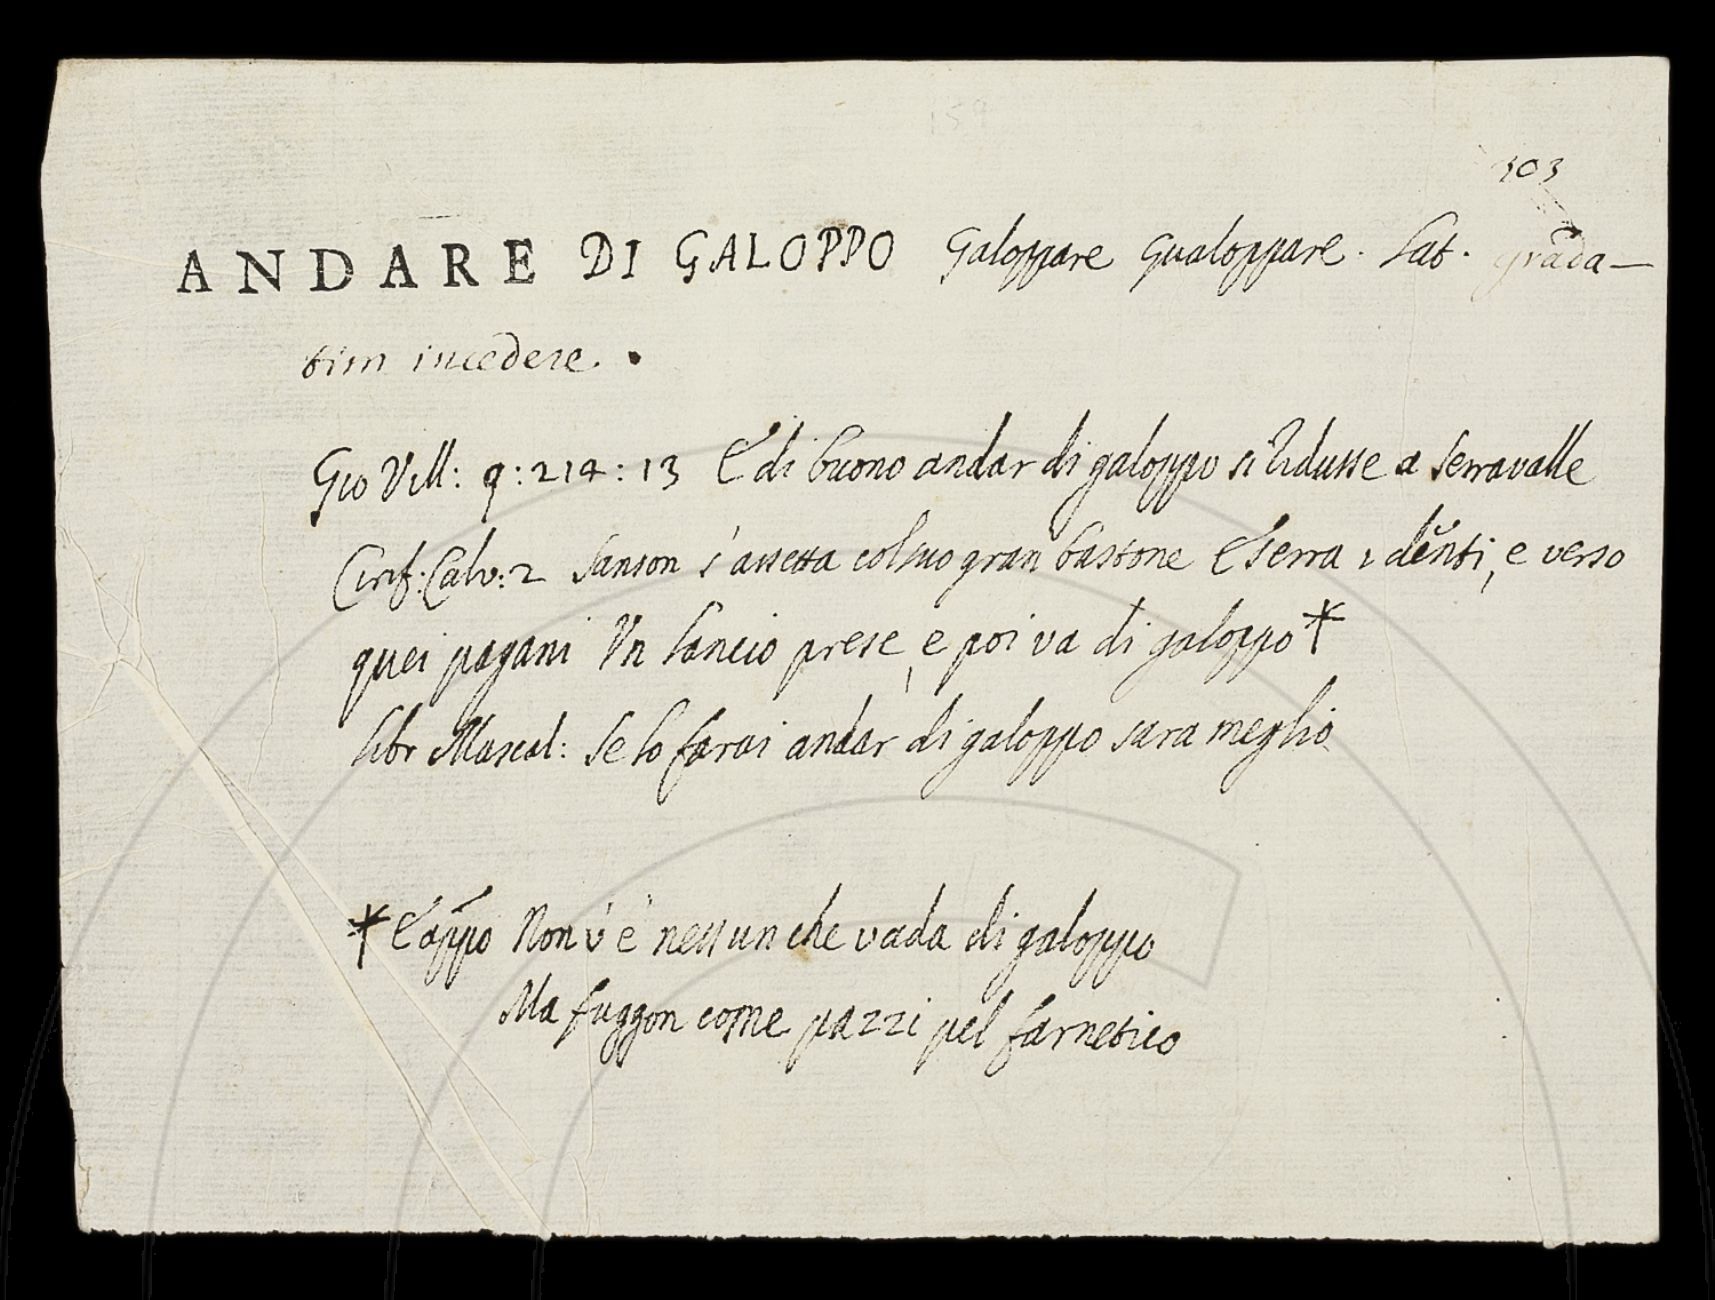 303
ANDARE DI GALOPPO Galoppare Gualoppare. Lat. grada-
tim incedere.
Gio Vill: 9:214:13 E di buono andar di galoppo si ridusse a Serravalle
Cirif: Calv: 2 Sanson s'assetta col suo gran bastone E serra i denti, e verso
quei pagani Un lancio prese, e poi va di galoppo *
libr Mascal: Se lo farai andar di galoppo sara meglio
* E appo Non v'è nessun che vada di galoppo
Ma fuggon come pazzi pel farnetico